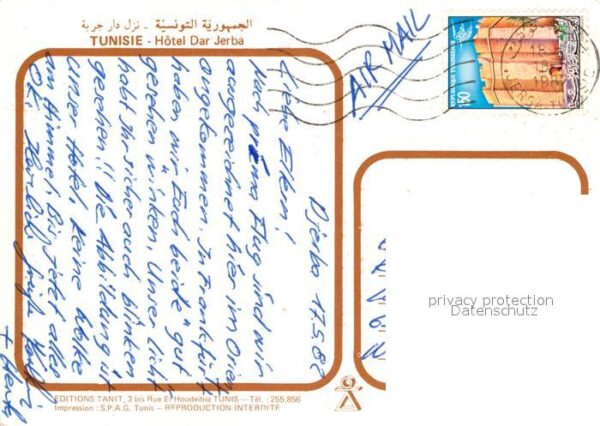 الجمهورية التونسية - نزل دار جربة
TUNISIE - Hôtel Dar Jerba
AIR MAIL
REPUBLIQUE TUNISIENNE
150
Djerba 17.5.82
Liebe Eltern!
Nach prima Flug sind wir
ausgezeichnet hier im Orient
angekommen. In Frankfurt
haben wir Euch beide gut
gesehen winken. Unser Licht
habt Ihr sicher auch blinken
gesehen!! Die Abbildung ist
unser Hotel, keine Wolke
am Himmel. Bis jetzt alles
O.K. Herzliche Grüße
+
privacy protection
Datenschutz
EDITIONS TANIT, 3 bis Rue El Houdeibia TUNIS - Tél. : 255.856
Impression : S.P.A.G. Tunis - REPRODUCTION INTERDITE